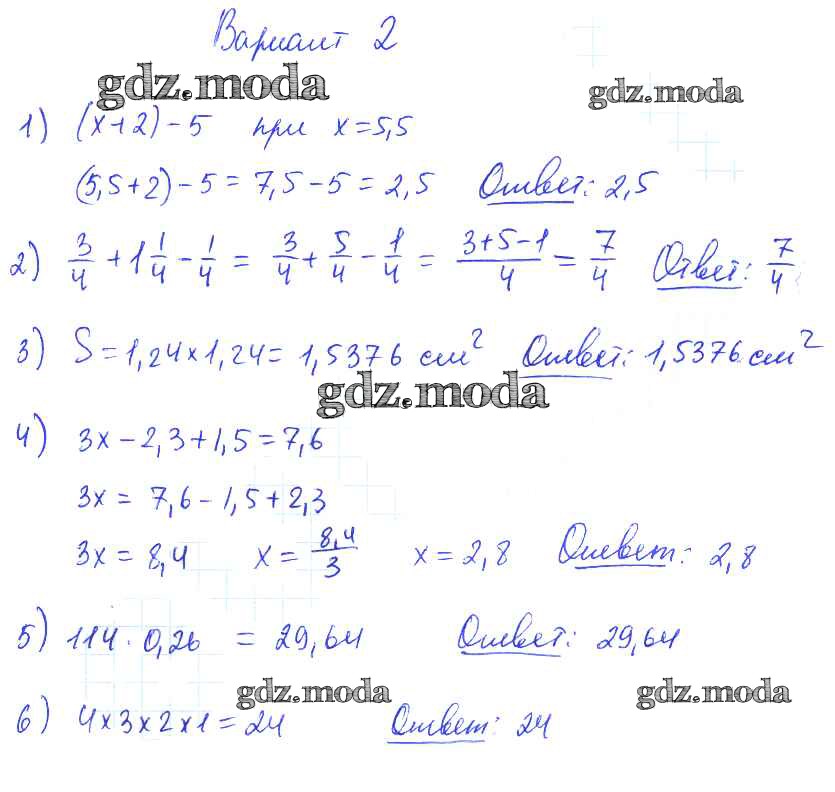 Вариант 2
gdz.moda
gdz.moda
1) (x+2)-5 при x=5,5
(5,5+2)-5=7,5-5=2,5 Ответ: 2,5
2) 3/4 + 1 1/4 - 1/4 = 3/4 + 5/4 - 1/4 = (3+5-1)/4 = 7/4 Ответ: 7/4
3) S=1,24×1,24=1,5376 см² Ответ: 1,5376 см²
gdz.moda
4) 3x-2,3+1,5=7,6
3x = 7,6-1,5+2,3
3x = 8,4 x = 8,4/3 x=2,8 Ответ: 2,8
5) 114·0,26 = 29,64 Ответ: 29,64
gdz.moda
gdz.moda
6) 4×3×2×1=24 Ответ: 24